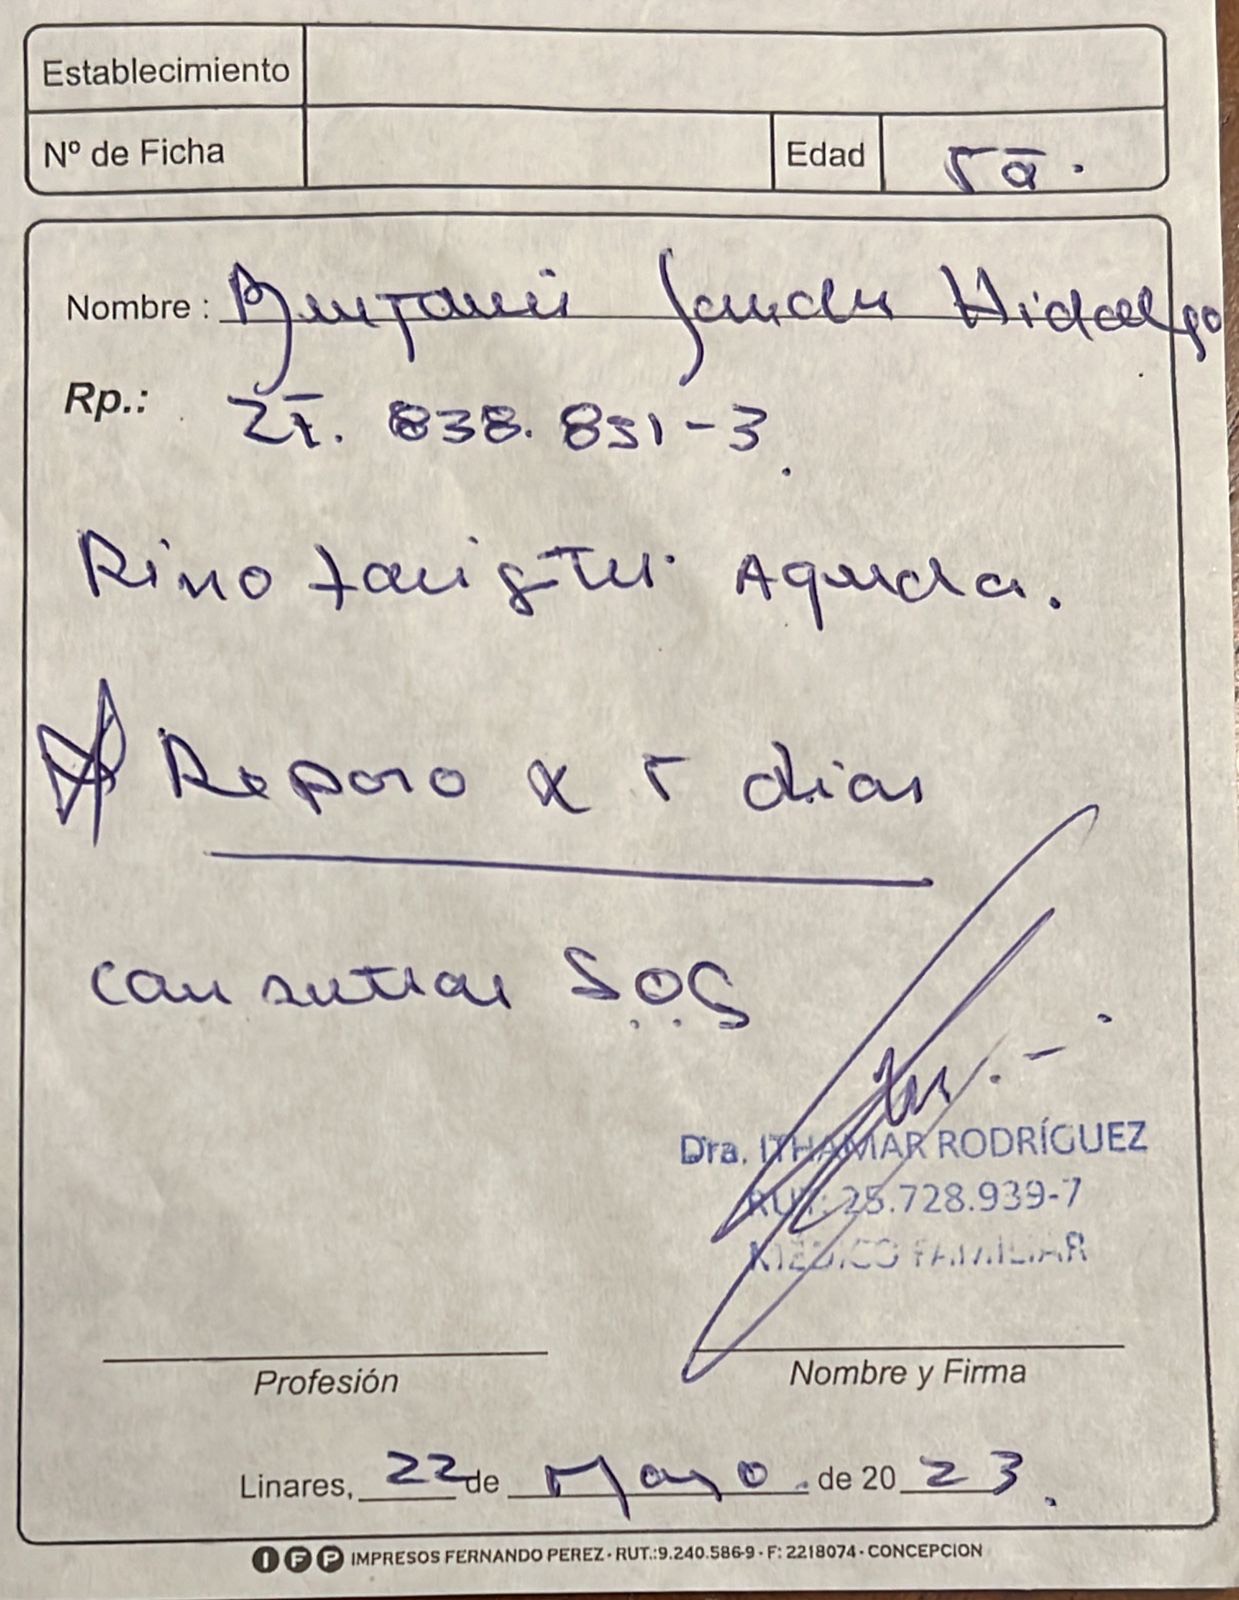 Establecimiento
Nº de Ficha Edad 5a.
Nombre: Benjamin Hidalgo
Rp.: 27.838.851-3.
Rino faringitis Aguda.
Reposo x 5 dias
SOS
Dra. ITHAMAR RODRÍGUEZ
RUT: 25.728.939-7
MEDICO FAMILIAR
Profesión Nombre y Firma
Linares, 22 de Mayo. de 2023.
IFP IMPRESOS FERNANDO PEREZ - RUT.:9.240.586-9 - F: 2218074 - CONCEPCION